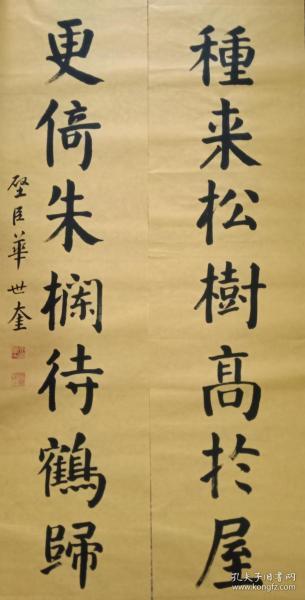 種来松樹高於屋
更倚朱欄待鶴歸
璧臣華世奎
孔夫子旧书网